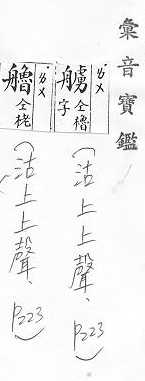 彙音寶鑑
ㄌㄨ
艣 仝櫓字
(沽上上聲、P223)
ㄌㄨ
艪 仝栳
(沽上上聲、P223)